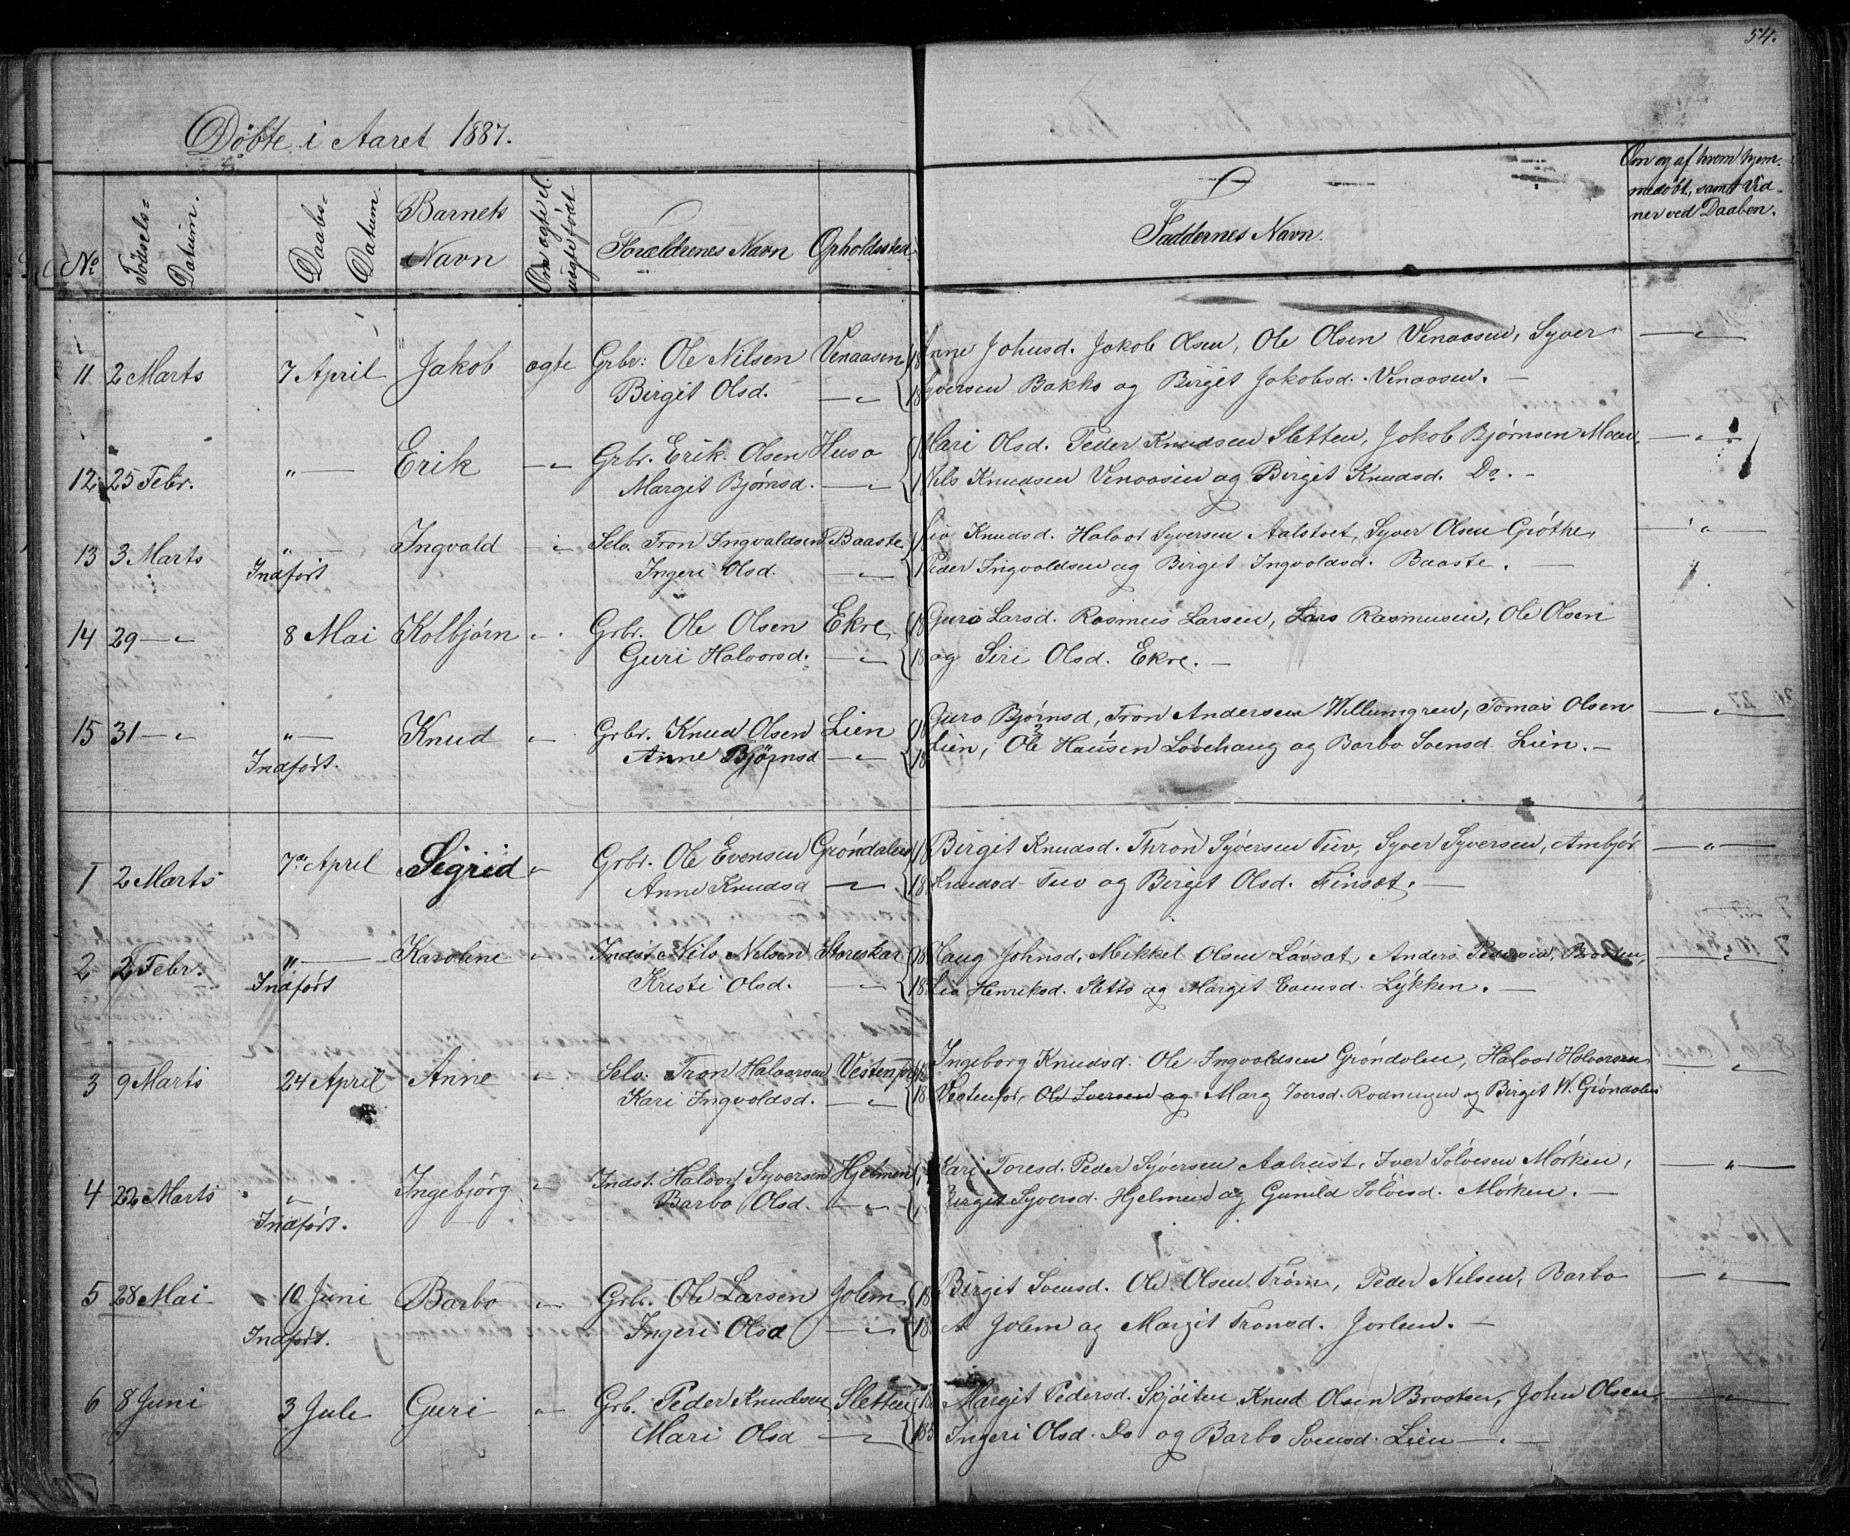 54.
Döbte i Aaret 1887.
No
Födsels-Datum.
Daabs-Datum.
Barnets Navn
Om ægte el. uægte född
Forældrenes Navn
Opholdssted
Faddernes Navn.
Om og af hvem hjem-
medöbt, samt Vid-
ner ved Daaben.
11 2 Marts 7 April Jakob ægte Grbr: Ole Nilsen Venaasen Anne Johnsd. Jakob Olsen, Ole Olsen Venaasen, Syver — „ —
Birgit Olsd. — „ — Syversen Bakko og Birgit Jakobsd. Venaasen. —
12 25 Febr. „ — Erik — „ — Grbr. Erik Olsen Huso Mari Olsd. Peder Knudsen Sletten, Jakob Bjørnsen Moen, — „ —
Margit Bjørnsd. — „ — Nils Knudsen Venaasen og Birgit Knudsd. Do. —
13 3 Marts „ — Ingvald — „ — Selv. Tron Ingvaldsen Baaste Liv Knudsd. Halvor Syversen Aalstvet, Syver Olsen Gröthe, — „ —
Indfört Ingeri Olsd. — „ — Peder Ingvaldsen og Birgit Ingvaldsd. Baaste. —
14 29 — „ 8 Mai Kolbjörn „ Grbr. Ole Olsen Ekre Guro Larsd. Rasmus Larsen, Lars Rasmusen, Ole Olsen
Guri Halvorsd. — „ — og Siri Olsd. Ekre. —
15 31 — „ „ — Knud „ Grbr. Knud Olsen Lien Guro Bjørnsd, Tron Andersen Villumgren, Tomas Olsen — „ —
Indfört. Anne Bjørnsd — „ — Lien, Ole Hansen Lövehaug og Barbo Svensd. Lien. —
1 2 Marts 7de April Sigrid „ Grbr. Ole Evensen Gröndalen Birgit Knudsd. Thron Syversen Tuv, Syver Syversen, Ambjör — „ —
Anne Knudsd — „ — Knudsd Tuv og Birgit Olsd. Finsæt. —
2 2 Febr. „ — Karoline „ Indst. Nils Nilsen Storeskar Haug Johnsd, Mikkel Olsen Lövsæt, Anders Pedersen, — „ —
Indfört Kristi Olsd. — „ — Liv Henriksd. Sletto og Margit Evensd. Lykken. —
3 9 Marts 24 April Anne „ Selv. Tron Halvorsen Vestenfor Ingeborg Knudsd. Ole Ingvaldsen Gröndalen, Halvor Halvorsen — „ —
Kari Ingvaldsd. — „ — Vestenfor, Ole Iversen og Marg Iversd. Rodningen og Birget N. Gröndalen
4 22 Marts „ Ingebjörg „ Indst. Halvor Syversen Hjelmen Kari Toresd. Peder Syversen Aalrust, Iver Sölvesen Mörken, — „ —
Indfört. Barbo Olsd. — „ — Birget Syversd. Hjelmen og Gunild Solvesd. Mörken. —
5 28 Mai 10 Juni Barbo „ Grb. Ole Larsen Jolem Birget Svensd. Ole Olsen Tröim, Peder Nilsen, Barbo — „ —
Indfört. Ingeri Olsd — „ — A Jolem og Margit Tronsd. Jorlem. —
6 8 Juni 3 Jule Guri „ Grb. Peder Knudsen Sletten Margit Pedersd. Skjöiten, Knud Olsen Brøsten, John Olsen, — „ —
Mari Olsd — „ — Ingeri Olsd. Do og Barbo Svensd. Lien —